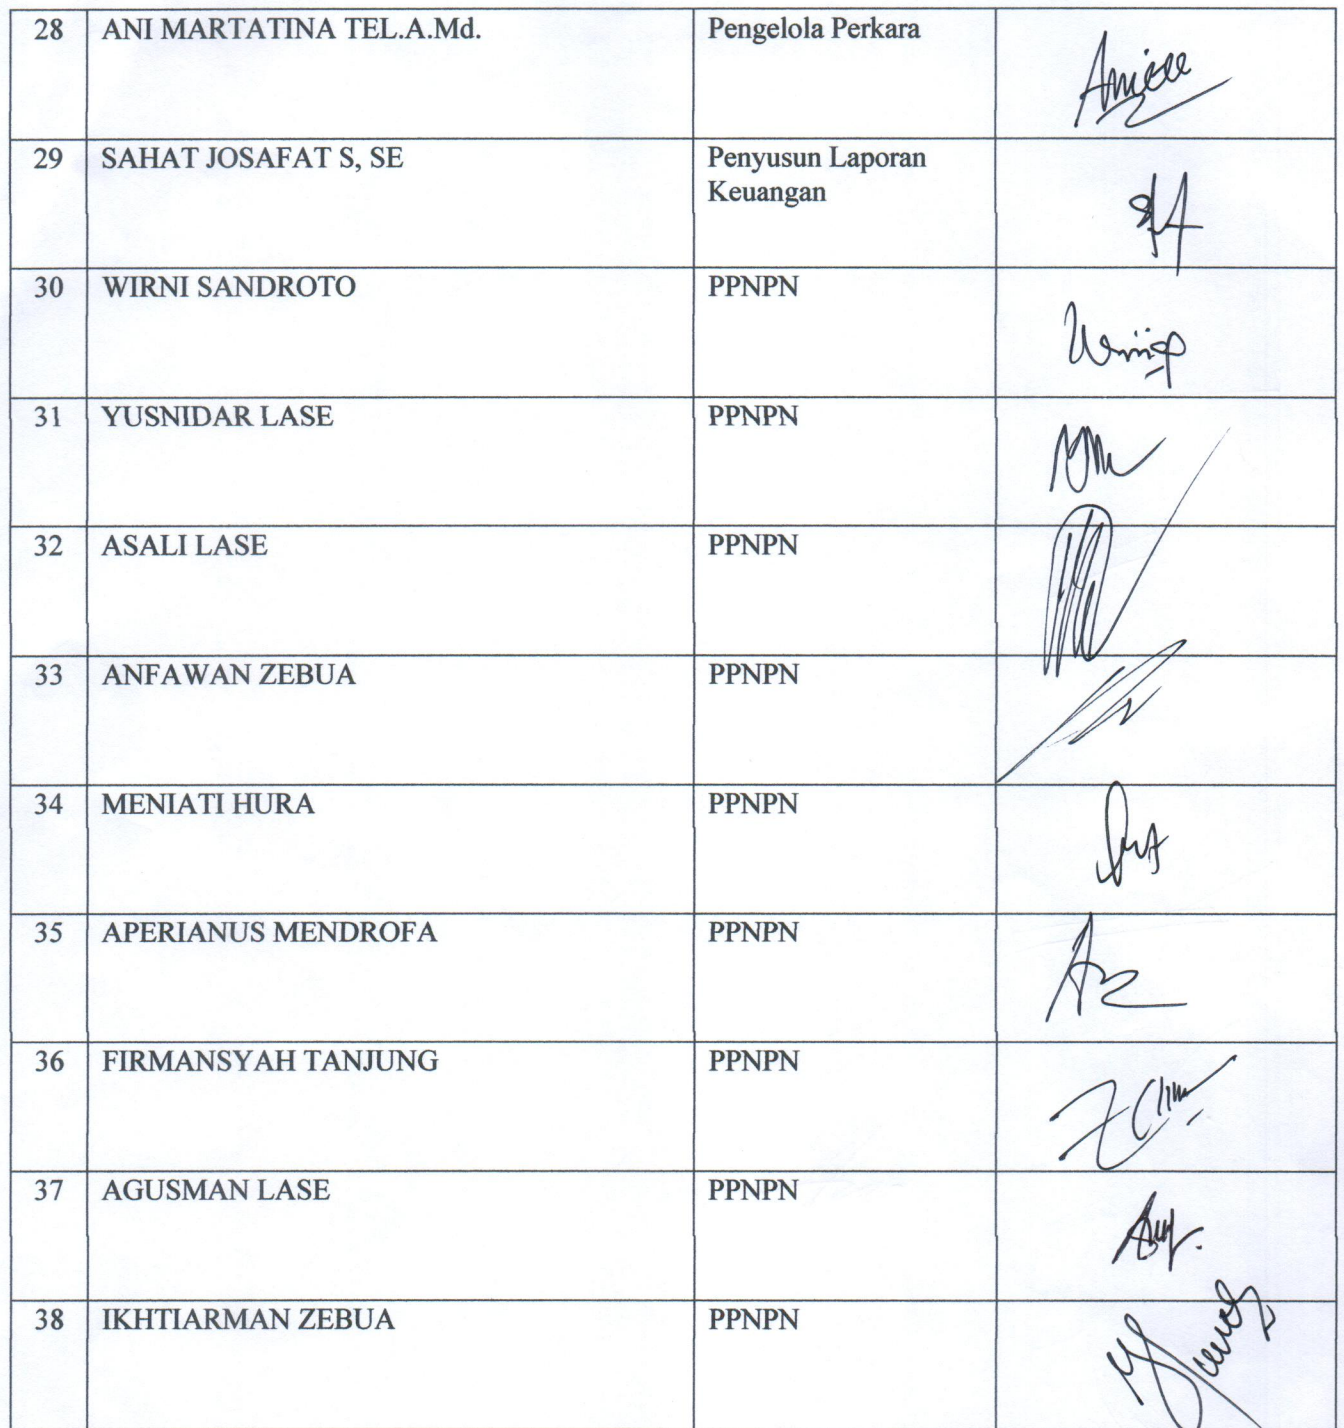 28 ANI MARTATINA TEL.A.Md. Pengelola Perkara
29 SAHAT JOSAFAT S, SE Penyusun Laporan
Keuangan
30 WIRNI SANDROTO PPNPN
31 YUSNIDAR LASE PPNPN
32 ASALI LASE PPNPN
33 ANFAWAN ZEBUA PPNPN
34 MENIATI HURA PPNPN
35 APERIANUS MENDROFA PPNPN
36 FIRMANSYAH TANJUNG PPNPN
37 AGUSMAN LASE PPNPN
38 IKHTIARMAN ZEBUA PPNPN